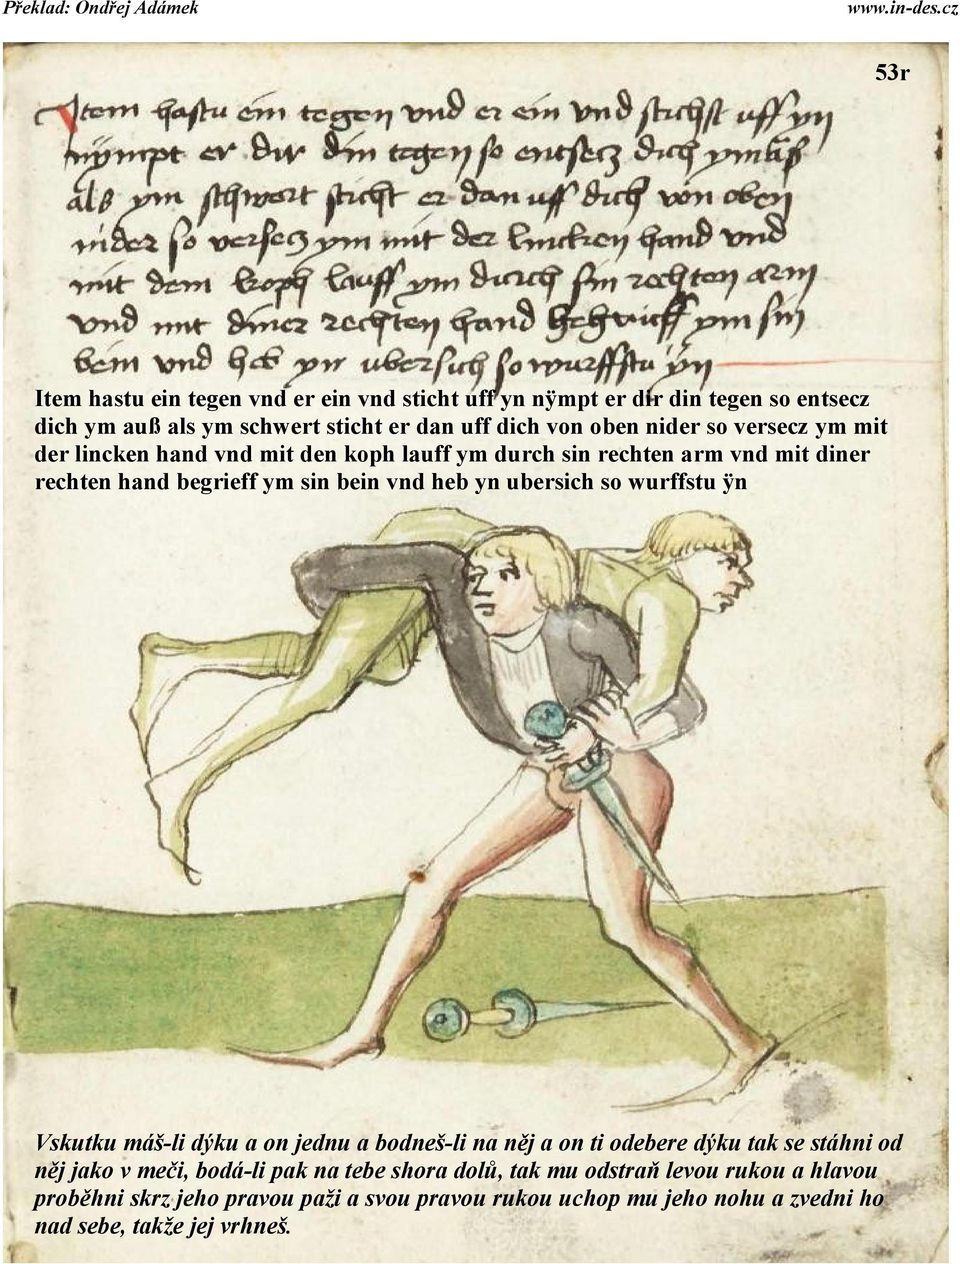 Překlad: Ondřej Adámek
www.in-des.cz
53r
Item hastu ein tegen vnd er ein vnd stichst uff yn
nÿmpt er dir din tegen so entsecz dich ym uß
als ym schwert sticht er dan uff dich von oben
nider so versecz ym mit der lincken hand vnd
mit dem koph lauff ym durch sin rechten arm
vnd mit diner rechten hand ym sin
bein vnd heb yn ubersich so wurffstu ÿn
Item hastu ein tegen vnd er ein vnd sticht uff yn nÿmpt er dir din tegen so entsecz
dich ym auß als ym schwert sticht er dan uff dich von oben nider so versecz ym mit
der lincken hand vnd mit den koph lauff ym durch sin rechten arm vnd mit diner
rechten hand begrieff ym sin bein vnd heb yn ubersich so wurffstu ÿn
Vskutku máš-li dýku a on jednu a bodneš-li na něj a on ti odebere dýku tak se stáhni od
něj jako v meči, bodá-li pak na tebe shora dolů, tak mu odstraň levou rukou a hlavou
proběhni skrz jeho pravou paži a svou pravou rukou uchop mu jeho nohu a zvedni ho
nad sebe, takže jej vrhneš.